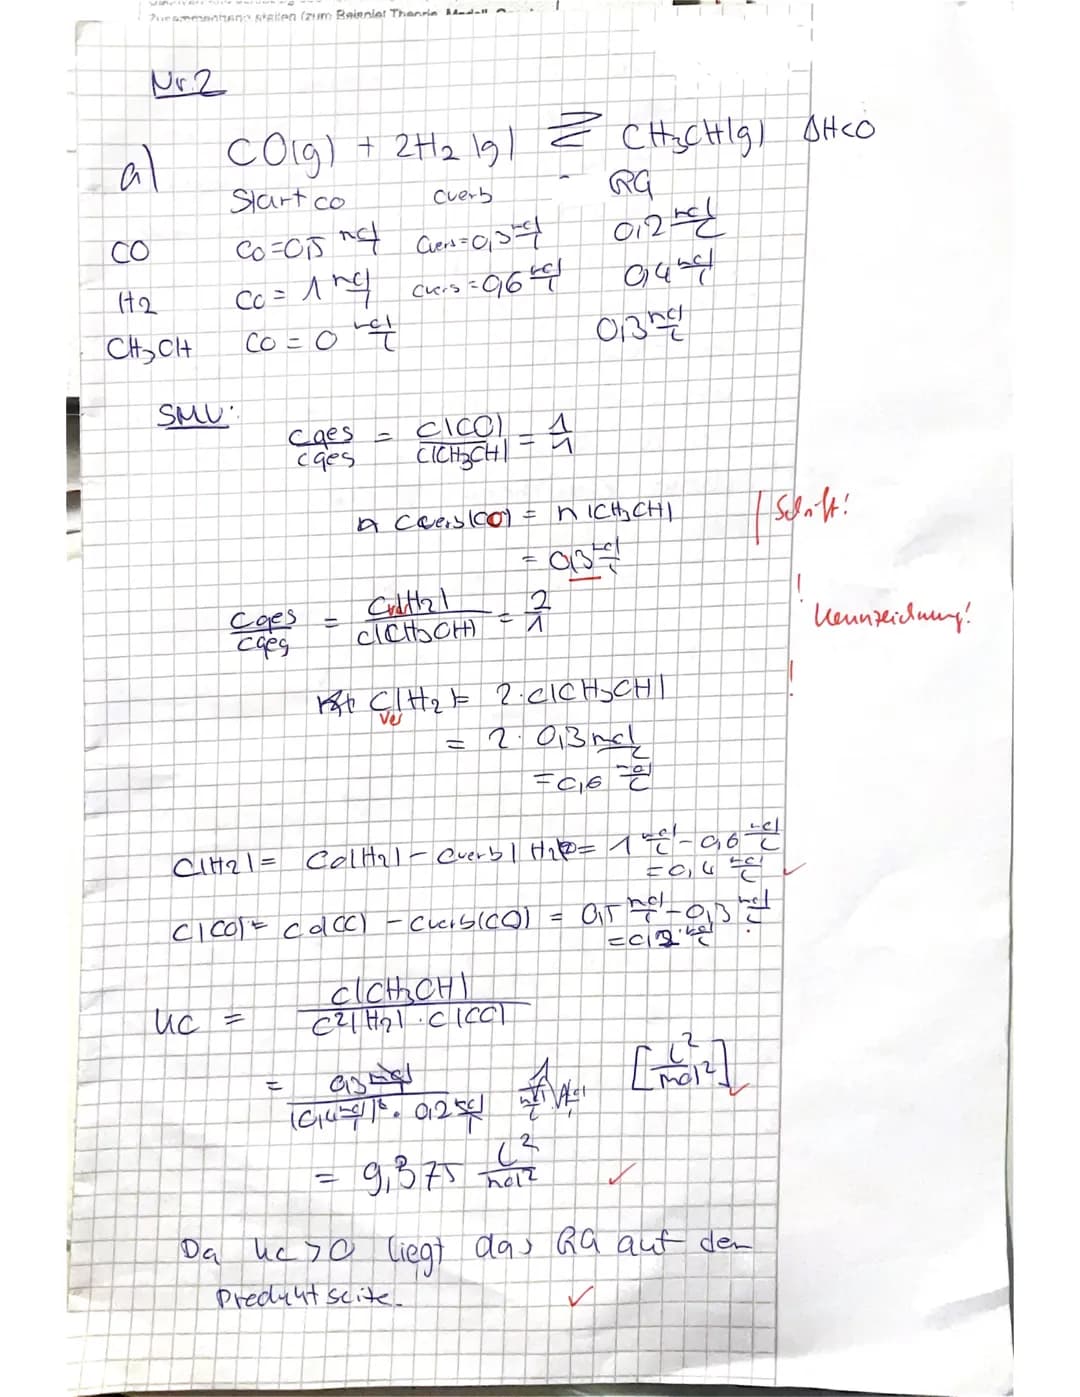 Zusammenhang stellen (zum Beispiel Theorie Modell
Nr. 2
a) CO(g) + 2H2(g) ⇌ CH3OH(g) ΔH<0
Start c0 cverb RG
CO c0 = 0,5 mol/l cvers = 0,3 mol/l 0,2 mol/l
H2 c0 = 1 mol/l cvers = 0,6 mol/l 0,4 mol/l
CH3OH c0 = 0 mol/l 0,3 mol/l
SMU:
cges/cges = c(CO)/c(CH3OH) = 1/1
cvers(CO) = n(CH3OH) Schrift!
= 0,3 mol/l
cges/cges = cver(H2)/c(CH3OH) = 2/1 ! Kennzeichnung!
c(H2) = 2·c(CH3OH) !
ver
= 2 · 0,3 mol/l
= 0,6 mol/l
c(H2) = c0(H2) - cverb(H2) = 1 mol/l - 0,6 mol/l
= 0,4 mol/l ✓
c(CO) = c0(CO) - cverb(CO) = 0,5 mol/l - 0,3 mol/l
= 0,2 mol/l
Kc = c(CH3OH) / c²(H2) · c(CO)
= 0,3 mol/l / (0,4 mol/l)² · 0,2 mol/l [l²/mol²] ✓
= 9,375 l²/mol² ✓
Da Kc > 0 liegt das GG auf der
Produktseite. ✓